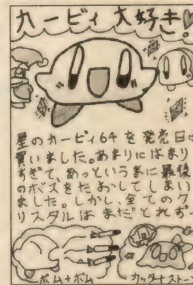 カービィ大好き!
星のカービィ64を発売日に
買いました。あまりにはまり
すぎて、あっというまに最後
のボスをたおしてしまい
ました。しかし、全てのク
リスタルはまだとれず
ボム+ボム
カッター+ストーン